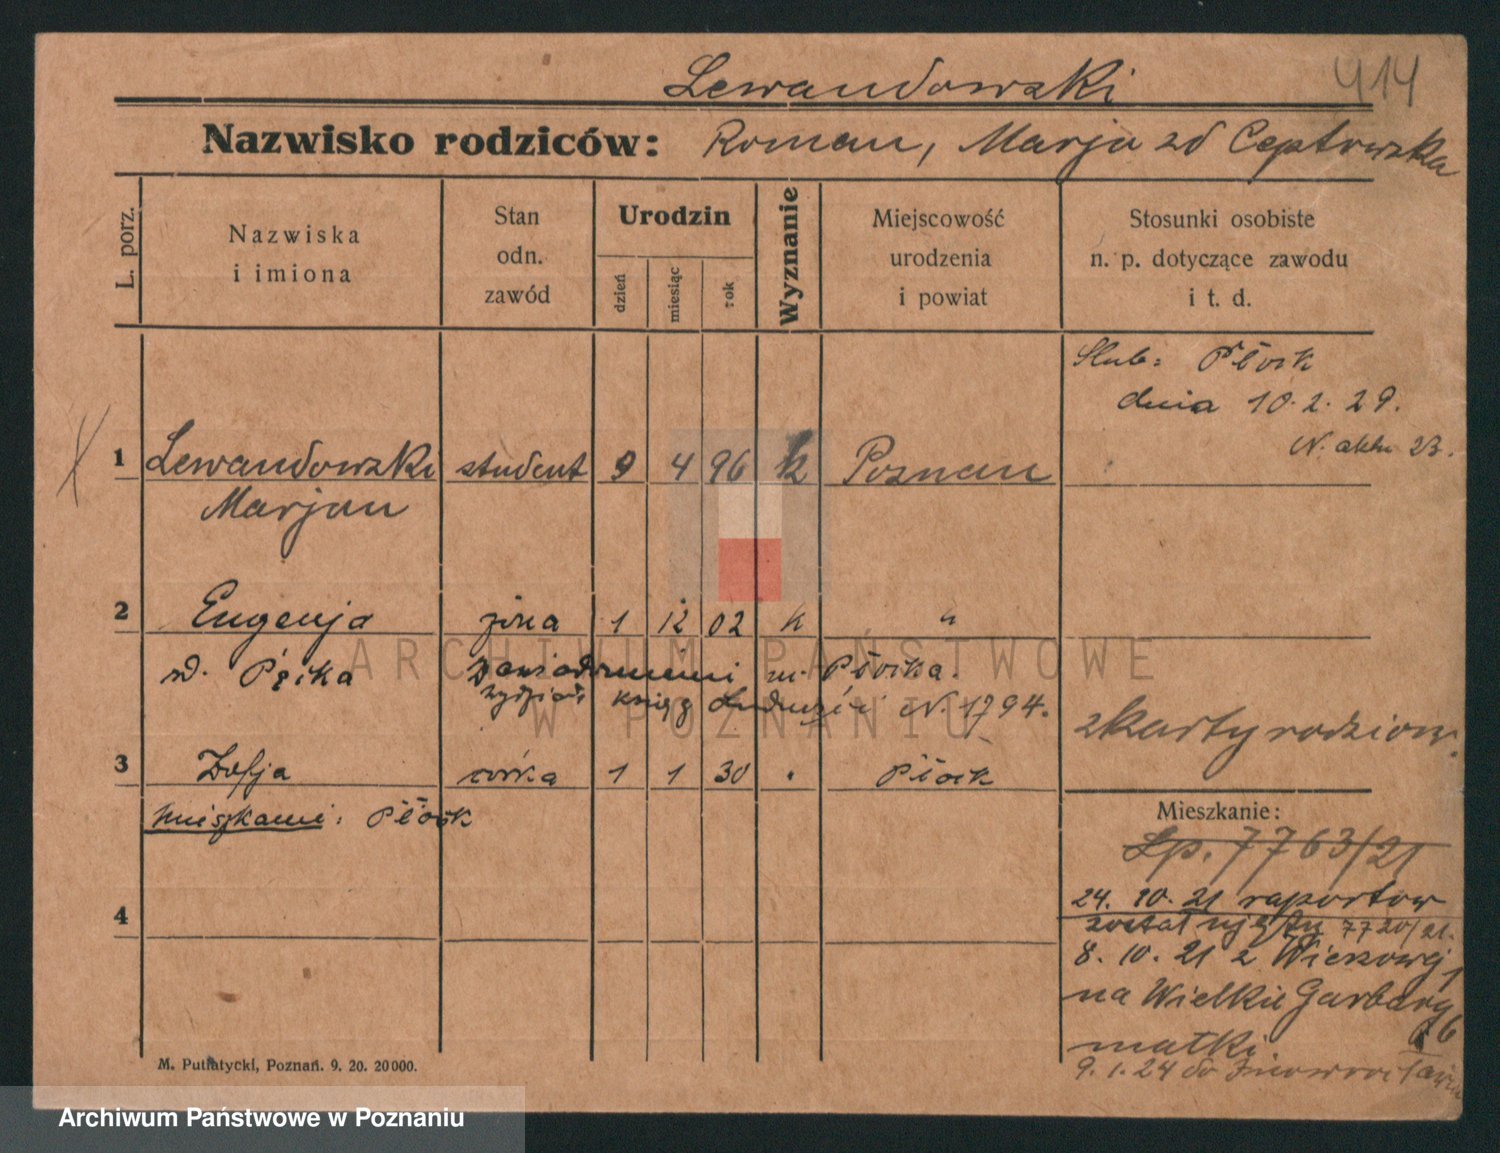 Lewandowski 414
Nazwisko rodziców: Roman, Marja zd Ceptowska
L. porz.
Nazwiska
i imiona
Stan
odn.
zawód
Urodzin
dzień
miesiąc
rok
Wyznanie
Miejscowość
urodzenia
i powiat
Stosunki osobiste
n. p. dotyczące zawodu
i t. d.
Ślub: Płock
dnia 10.2.29.
N. aktu 23.
1 Lewandowski student 9 4 96 k Poznań
Marjan
2 Eugenja żona 1 12 02 k "
zd. zawiadomieni m. Płocka.
wydział ksiąg Ludności N. 1794.
z karty rodzicow.
3 Zofja córka 1 1 30 " Płock
mieszkanie: Płock
4
Mieszkanie:
Lp. 7763/21
24. 10. 21 raportow
został 7720/21.
8. 10. 21 z Wierzowej
na Wielkie Garbary 6
matki
9. 1. 24 do Inowrocławia
M. Putiatycki, Poznań. 9. 20. 20000.
ARCHIWUM PAŃSTWOWE
W POZNANIU
Archiwum Państwowe w Poznaniu